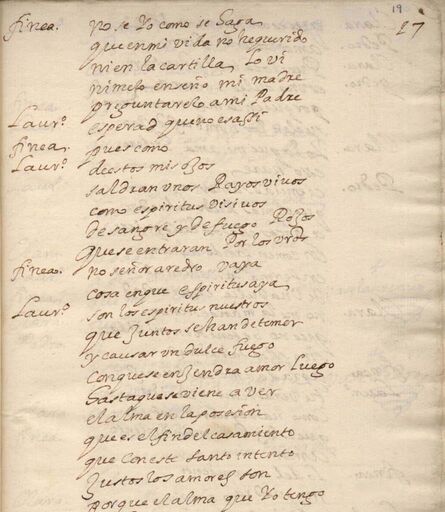 19
17
finea. no se Yo como se haga
que en mi vida no he querido
ni en la cartilla lo vi
ni me lo enseño mi madre
preguntarelo a mi Padre
Laurº esperad que no es assi
finea. pues como
Laurº de estos mis ojos
saldran vnos Rayos viuos
como espiritus visiuos
de sangre y de fuego Rojos
que se entraran Por los vros
finea. no señor arredro vaya
cosa en que espiritus aya
Laurº son los espiritus nuestros
que juntos se han de tener
y causar vn dulce fuego
con que se enjendra amor luego
hasta que se viene a ver
el alma en la posesion
que es el fin del casamiento
que con este santo intento
justos los amores son
Porque el alma que Yo tengo